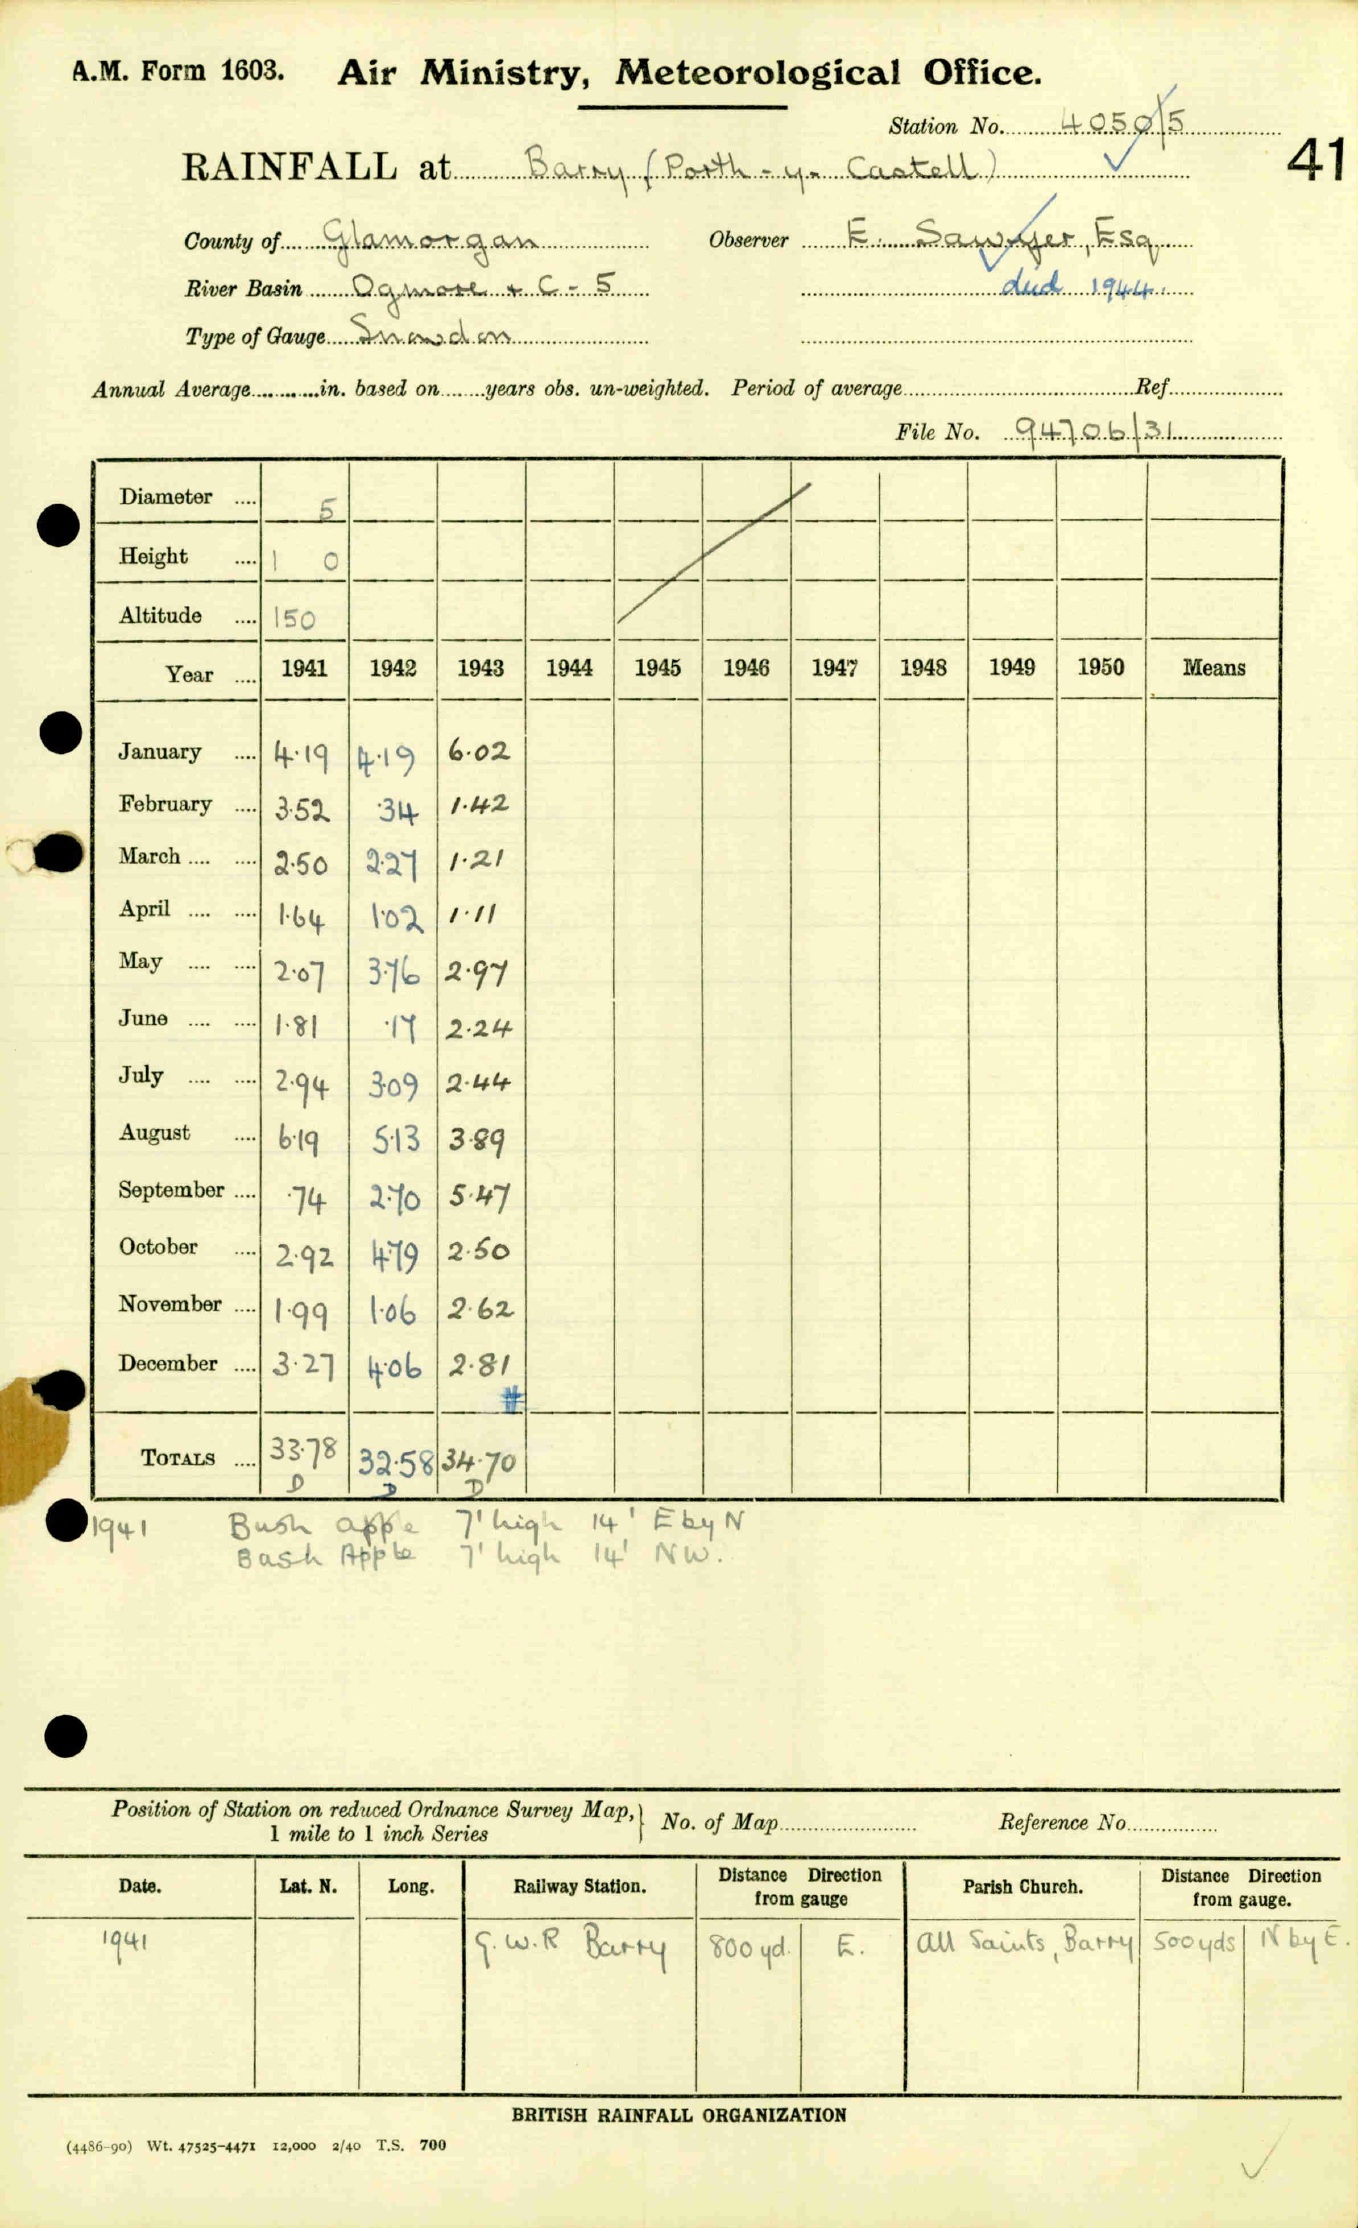 A.M. Form 1603. Air Ministry, Meteorological Office.
Station No. 4050/5
RAINFALL at Barry (Porth-y-Castell) 41
County of Glamorgan Observer E. Sawyer, Esq
River Basin Ogmore + C-5 died 1944.
Type of Gauge Snowdon
Annual Average in. based on years obs. un-weighted. Period of average Ref.
File No. 94706/31
Diameter .... 5
Height .... 1 0
Altitude .... 150
Year .... 1941 1942 1943 1944 1945 1946 1947 1948 1949 1950 Means
January .... 4.19 4.19 6.02
February .... 3.52 .34 1.42
March .... .... 2.50 2.27 1.21
April .... .... 1.64 1.02 1.11
May .... .... 2.07 3.76 2.97
June .... .... 1.81 .17 2.24
July .... .... 2.94 3.09 2.44
August .... 6.19 5.13 3.89
September .... .74 2.70 5.47
October .... 2.92 4.79 2.50
November .... 1.99 1.06 2.62
December .... 3.27 4.06 2.81
#
TOTALS .... 33.78 32.58 34.70
D D D
1941 Bush apple 7' high 14' E by N
Bush Apple 7' high 14' NW.
Position of Station on reduced Ordnance Survey Map,} No. of Map Reference No.
1 mile to 1 inch Series
Date. Lat. N. Long. Railway Station. Distance Direction from gauge Parish Church. Distance Direction from gauge.
1941 G.W.R Barry 800 yd. E. All Saints, Barry 500 yds N by E.
BRITISH RAINFALL ORGANIZATION
(4486-90) Wt. 47525-4471 12,000 2/40 T.S. 700